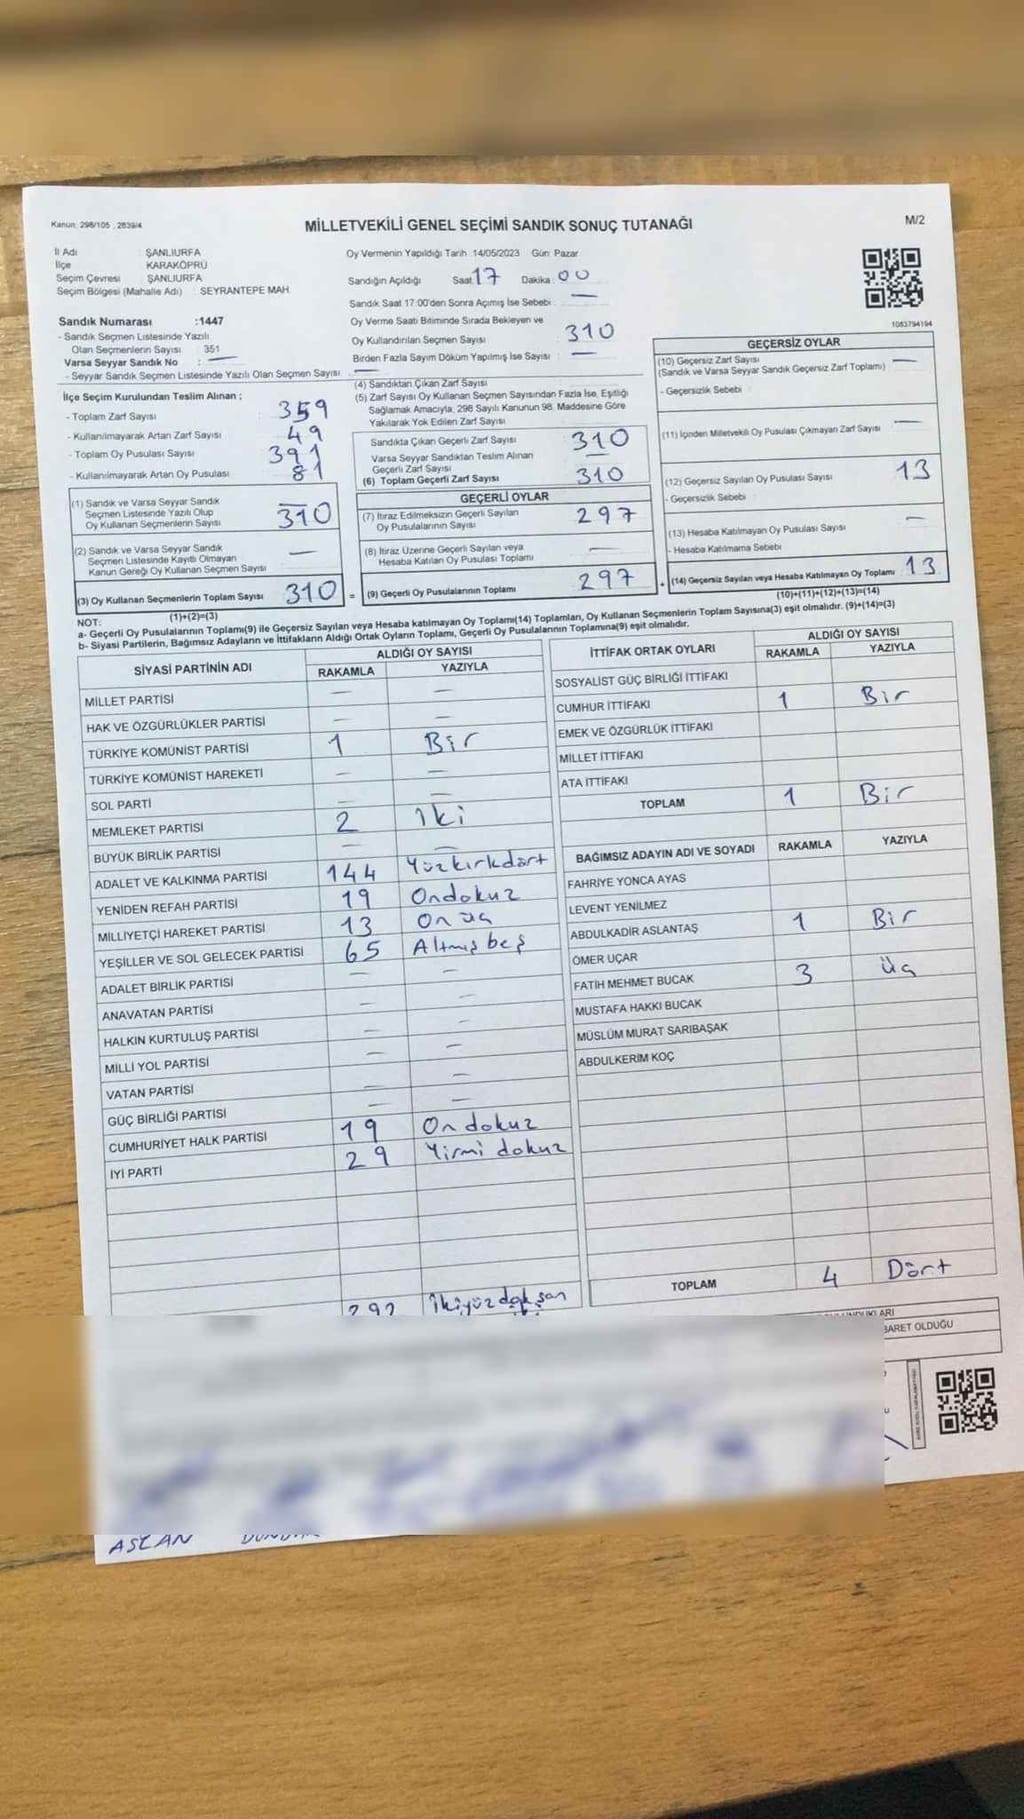 Kanun: 298/105 , 2839/4
MİLLETVEKİLİ GENEL SEÇİMİ SANDIK SONUÇ TUTANAĞI
M/2
İl Adı : ŞANLIURFA
İlçe KARAKÖPRÜ
Seçim Çevresi ŞANLIURFA
Seçim Bölgesi (Mahalle Adı) : SEYRANTEPE MAH.
Oy Vermenin Yapıldığı Tarih 14/05/2023 Gün Pazar
Sandığın Açıldığı Saat 17 Dakika : 00
Sandık Saat 17:00'den Sonra Açımış İse Sebebi : —
Sandık Numarası :1447
- Sandık Seçmen Listesinde Yazılı
Olan Seçmenlerin Sayısı 351
Varsa Seyyar Sandık No : —
- Seyyar Sandık Seçmen Listesinde Yazılı Olan Seçmen Sayısı : —
Oy Verme Saati Bitiminde Sırada Bekleyen ve
Oy Kullandırılan Seçmen Sayısı 310
Birden Fazla Sayım Döküm Yapılmış İse Sayısı : —
1083794194
İlçe Seçim Kurulundan Teslim Alınan ;
- Toplam Zarf Sayısı : 359
- Kullanılmayarak Artan Zarf Sayısı : 49
- Toplam Oy Pusulası Sayısı : 391
- Kullanılmayarak Artan Oy Pusulası : 81
(1) Sandık ve Varsa Seyyar Sandık
Seçmen Listesinde Yazılı Olup
Oy Kullanan Seçmenlerin Sayısı 310
(2) Sandık ve Varsa Seyyar Sandık
Seçmen Listesinde Kayıtlı Olmayan
Kanun Gereği Oy Kullanan Seçmen Sayısı —
(3) Oy Kullanan Seçmenlerin Toplam Sayısı 310 =
(1)+(2)=(3)
(4) Sandıktan Çıkan Zarf Sayısı
(5) Zarf Sayısı Oy Kullanan Seçmen Sayısından Fazla İse, Eşitliği
Sağlamak Amacıyla, 298 Sayılı Kanunun 98. Maddesine Göre
Yakılarak Yok Edilen Zarf Sayısı
Sandıkta Çıkan Geçerli Zarf Sayısı 310
Varsa Seyyar Sandıktan Teslim Alınan
Geçerli Zarf Sayısı —
(6) Toplam Geçerli Zarf Sayısı 310
GEÇERLİ OYLAR
(7) İtiraz Edilmeksizin Geçerli Sayılan
Oy Pusulalarının Sayısı 297
(8) İtiraz Üzerine Geçerli Sayılan veya
Hesaba Katılan Oy Pusulası Toplamı —
(9) Geçerli Oy Pusulalarının Toplamı 297 +
GEÇERSİZ OYLAR
(10) Geçersiz Zarf Sayısı —
(Sandık ve Varsa Seyyar Sandık Geçersiz Zarf Toplamı)
- Geçersizlik Sebebi :
(11) İçinden Milletvekili Oy Pusulası Çıkmayan Zarf Sayısı —
(12) Geçersiz Sayılan Oy Pusulası Sayısı 13
- Geçersizlik Sebebi :
(13) Hesaba Katılmayan Oy Pusulası Sayısı —
- Hesaba Katılmama Sebebi
(14) Geçersiz Sayılan veya Hesaba Katılmayan Oy Toplamı 13
(10)+(11)+(12)+(13)=(14)
NOT:
a- Geçerli Oy Pusulalarının Toplamı(9) ile Geçersiz Sayılan veya Hesaba katılmayan Oy Toplamı(14) Toplamları, Oy Kullanan Seçmenlerin Toplam Sayısına(3) eşit olmalıdır. (9)+(14)=(3)
b- Siyasi Partilerin, Bağımsız Adayların ve İttifakların Aldığı Ortak Oyların Toplamı, Geçerli Oy Pusulalarının Toplamına(9) eşit olmalıdır.
SİYASİ PARTİNİN ADI ALDIĞI OY SAYISI
RAKAMLA YAZIYLA
MİLLET PARTİSİ — —
HAK VE ÖZGÜRLÜKLER PARTİSİ — —
TÜRKİYE KOMÜNİST PARTİSİ 1 Bir
TÜRKİYE KOMÜNİST HAREKETİ — —
SOL PARTİ — —
MEMLEKET PARTİSİ 2 iki
BÜYÜK BİRLİK PARTİSİ — —
ADALET VE KALKINMA PARTİSİ 144 Yüzkırkdört
YENİDEN REFAH PARTİSİ 19 Ondokuz
MİLLİYETÇİ HAREKET PARTİSİ 13 On üç
YEŞİLLER VE SOL GELECEK PARTİSİ 65 Altmış beş
ADALET BİRLİK PARTİSİ —
ANAVATAN PARTİSİ — —
HALKIN KURTULUŞ PARTİSİ — —
MİLLİ YOL PARTİSİ — —
VATAN PARTİSİ — —
GÜÇ BİRLİĞİ PARTİSİ — —
CUMHURİYET HALK PARTİSİ 19 On dokuz
İYİ PARTİ 29 Yirmi dokuz
292 İkiyüz doksan
İTTİFAK ORTAK OYLARI ALDIĞI OY SAYISI
RAKAMLA YAZIYLA
SOSYALİST GÜÇ BİRLİĞİ İTTİFAKI
CUMHUR İTTİFAKI 1 Bir
EMEK VE ÖZGÜRLÜK İTTİFAKI
MİLLET İTTİFAKI
ATA İTTİFAKI
TOPLAM 1 Bir
BAĞIMSIZ ADAYIN ADI VE SOYADI RAKAMLA YAZIYLA
FAHRİYE YONCA AYAS
LEVENT YENİLMEZ
ABDULKADİR ASLANTAŞ 1 Bir
ÖMER UÇAR
FATİH MEHMET BUCAK 3 üç
MUSTAFA HAKKI BUCAK
MÜSLÜM MURAT SARIBAŞAK
ABDULKERİM KOÇ
TOPLAM 4 Dört
BARET OLDUĞU
ASLAN